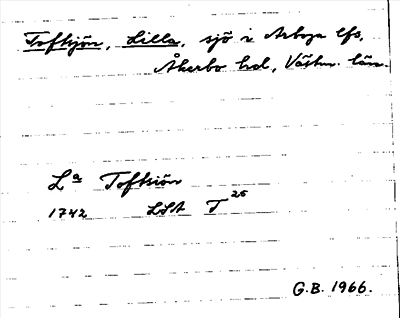 Toftsjön, Lilla, sjö i Arboga lfs,
Åkerbo hd, Västm. län.
La Toftsiön
1742 LSA T 26
G.B. 1966.